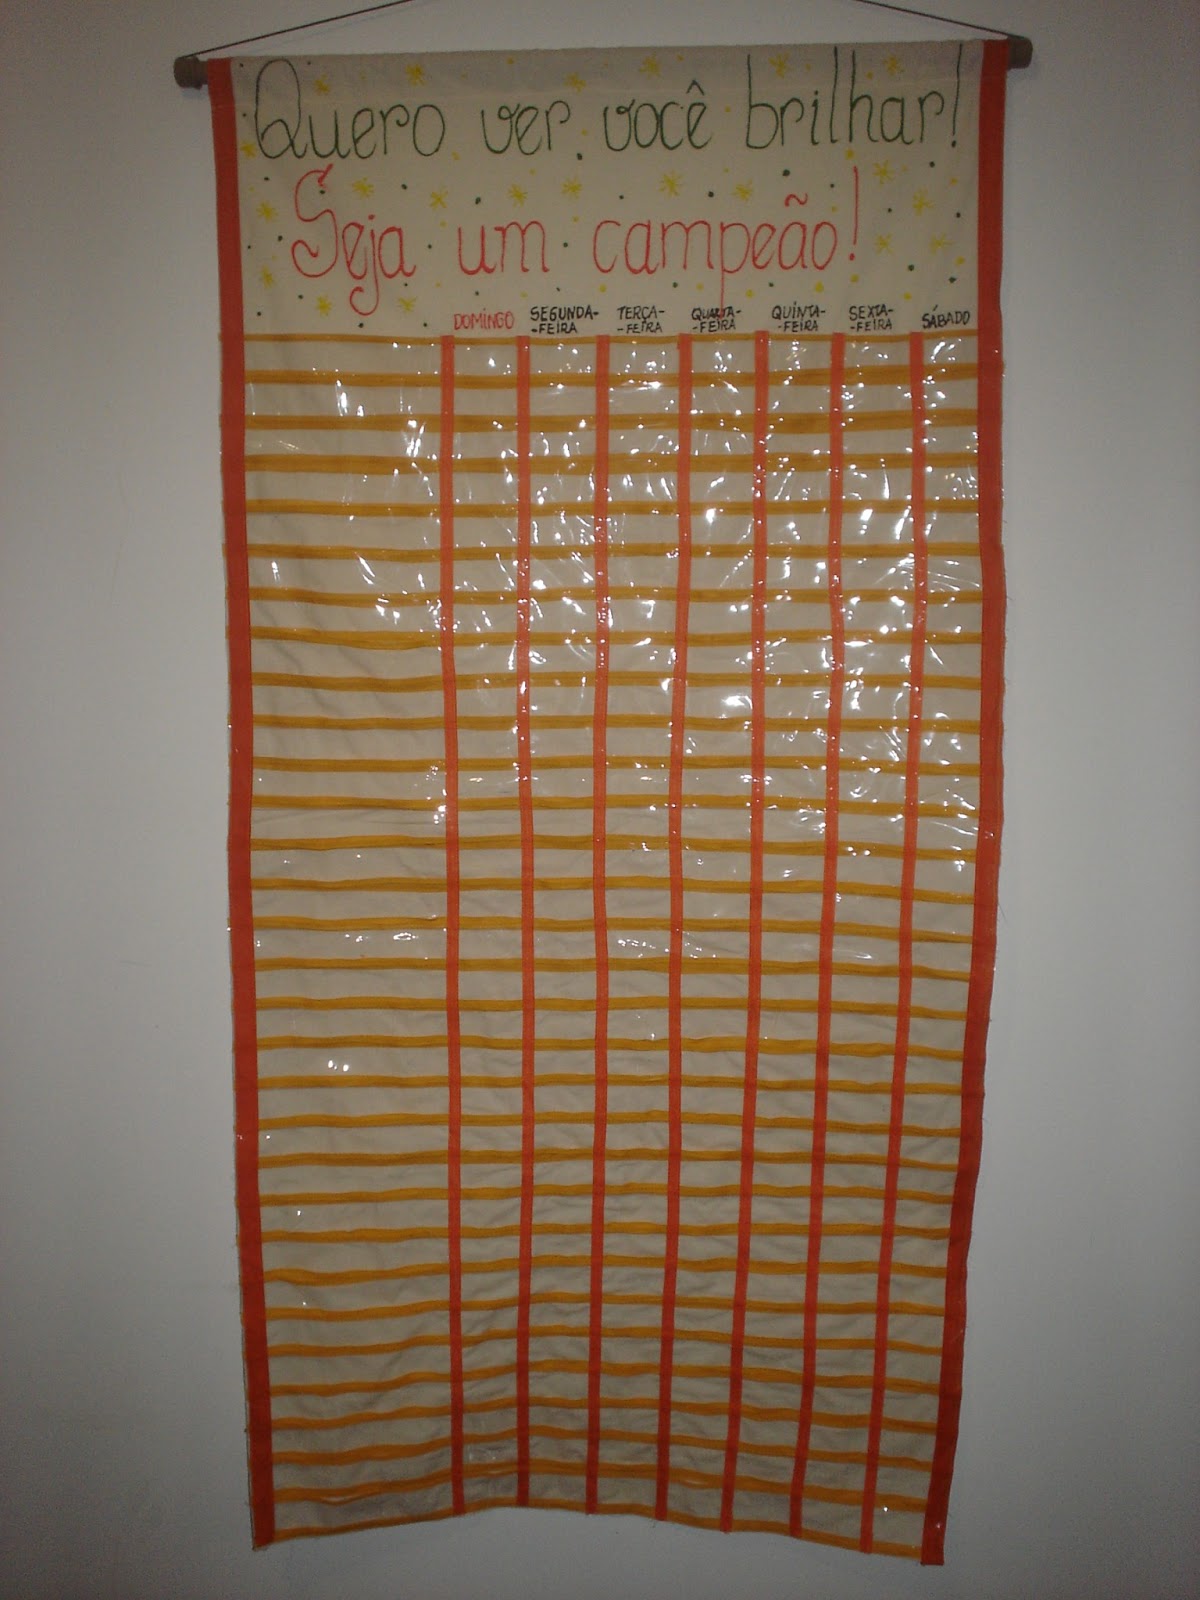 Quero ver você brilhar!
Seja um campeão!
DOMINGO SEGUNDA- TERÇA- QUARTA- QUINTA- SEXTA- SÁBADO
-FEIRA -FEIRA -FEIRA -FEIRA -FEIRA